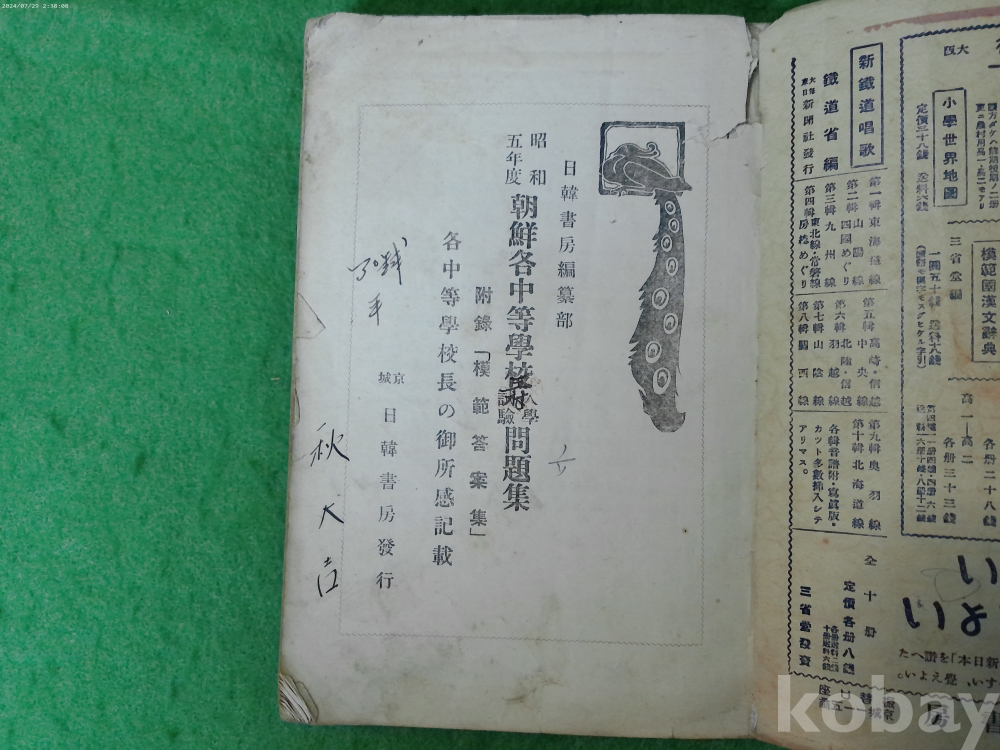 2024/07/29 2:38:08
日韓書房編纂部
昭和五年度 朝鮮各中等學校入學試驗問題集
附錄「模範答案集」
各中等學校長の御所感記載
京城 日韓書房發行
秋大吉
大阪
小學世界地圖
定價三十八錢 送料六錢
模範國漢文辭典
三省堂編
一圓五十錢 送料十八錢
高一—高二
各册二十八錢
各册三十三錢
新鐵道唱歌
鐵道省編
大每東日新聞社發行
第一輯東海道線
第二輯山陽線 四國めぐり
第三輯九州線
第四輯東北線・常磐線 房總めぐり
第五輯高崎・信越 中央線
第六輯北陸・信越 羽越線
第七輯山陰線
第八輯關西線
第九輯奧羽線
第十輯北海道線
各輯音譜附・寫眞版・
カット多數挿入シテ
アリマス。
全十册
定價各册八錢
三省堂發賣
い
よい
新日本」を讃へた
すい、覺えよい。
房
kobay